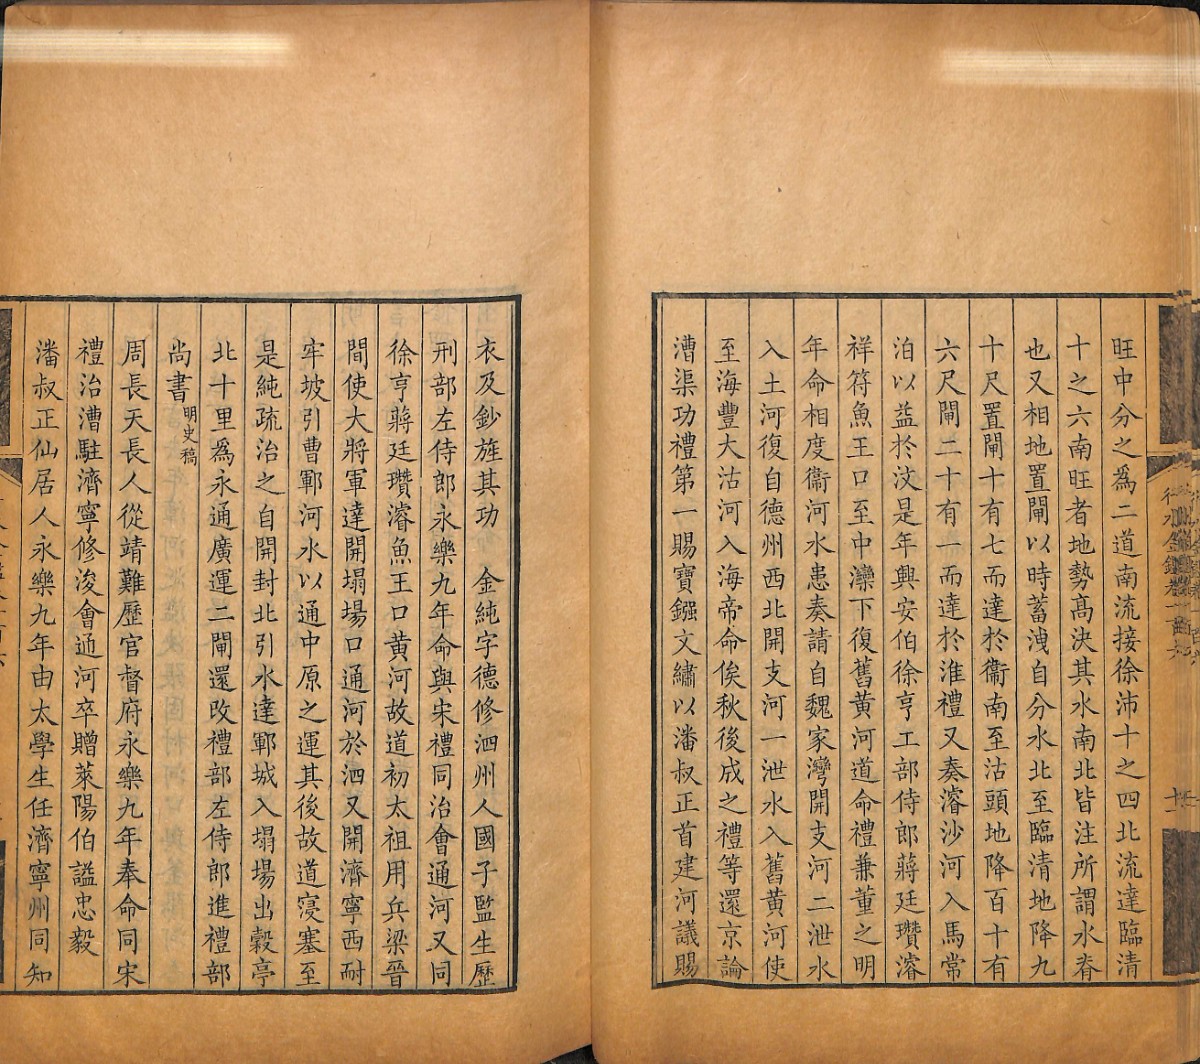 旺中分之爲二道南流接徐沛十之四北流達臨清
十之六南旺者地勢高決其水南北皆注所謂水脊
也又相地置閘以時蓄洩自分水北至臨清地降九
十尺置閘十有七而達於衞南至沽頭地降百十有
六尺閘二十有一而達於淮禮又奏濬沙河入馬常
泊以益於汶是年興安伯徐亨工部侍郎蔣廷瓚濬
祥符魚王口至中灤下復舊黃河道命禮兼董之明
年命相度衞河水患奏請自魏家灣開支河二泄水
入土河復自德州西北開支河一泄水入舊黃河使
至海豐大沽河入海帝命俟秋後成之禮等還京論
漕渠功禮第一賜寶鏹文繡以潘叔正首建河議賜
衣及鈔旌其功　金純字德修泗州人國子監生歷
刑部左侍郎永樂九年命與宋禮同治會通河又同
徐亨蔣廷瓚濬魚王口黃河故道初太祖用兵梁晉
間使大將軍達開塌場口通河於泗又開濟寧西耐
牢坡引曹鄆河水以通中原之運其後故道寖塞至
是純疏治之自開封北引水達鄆城入塌場出穀亭
北十里爲永通廣運二閘還改禮部左侍郎進禮部
尚書明史稿
周長天長人從靖難歷官督府永樂九年奉命同宋
禮治漕駐濟寧修浚會通河卒贈萊陽伯謚忠毅
潘叔正仙居人永樂九年由太學生任濟寧州同知